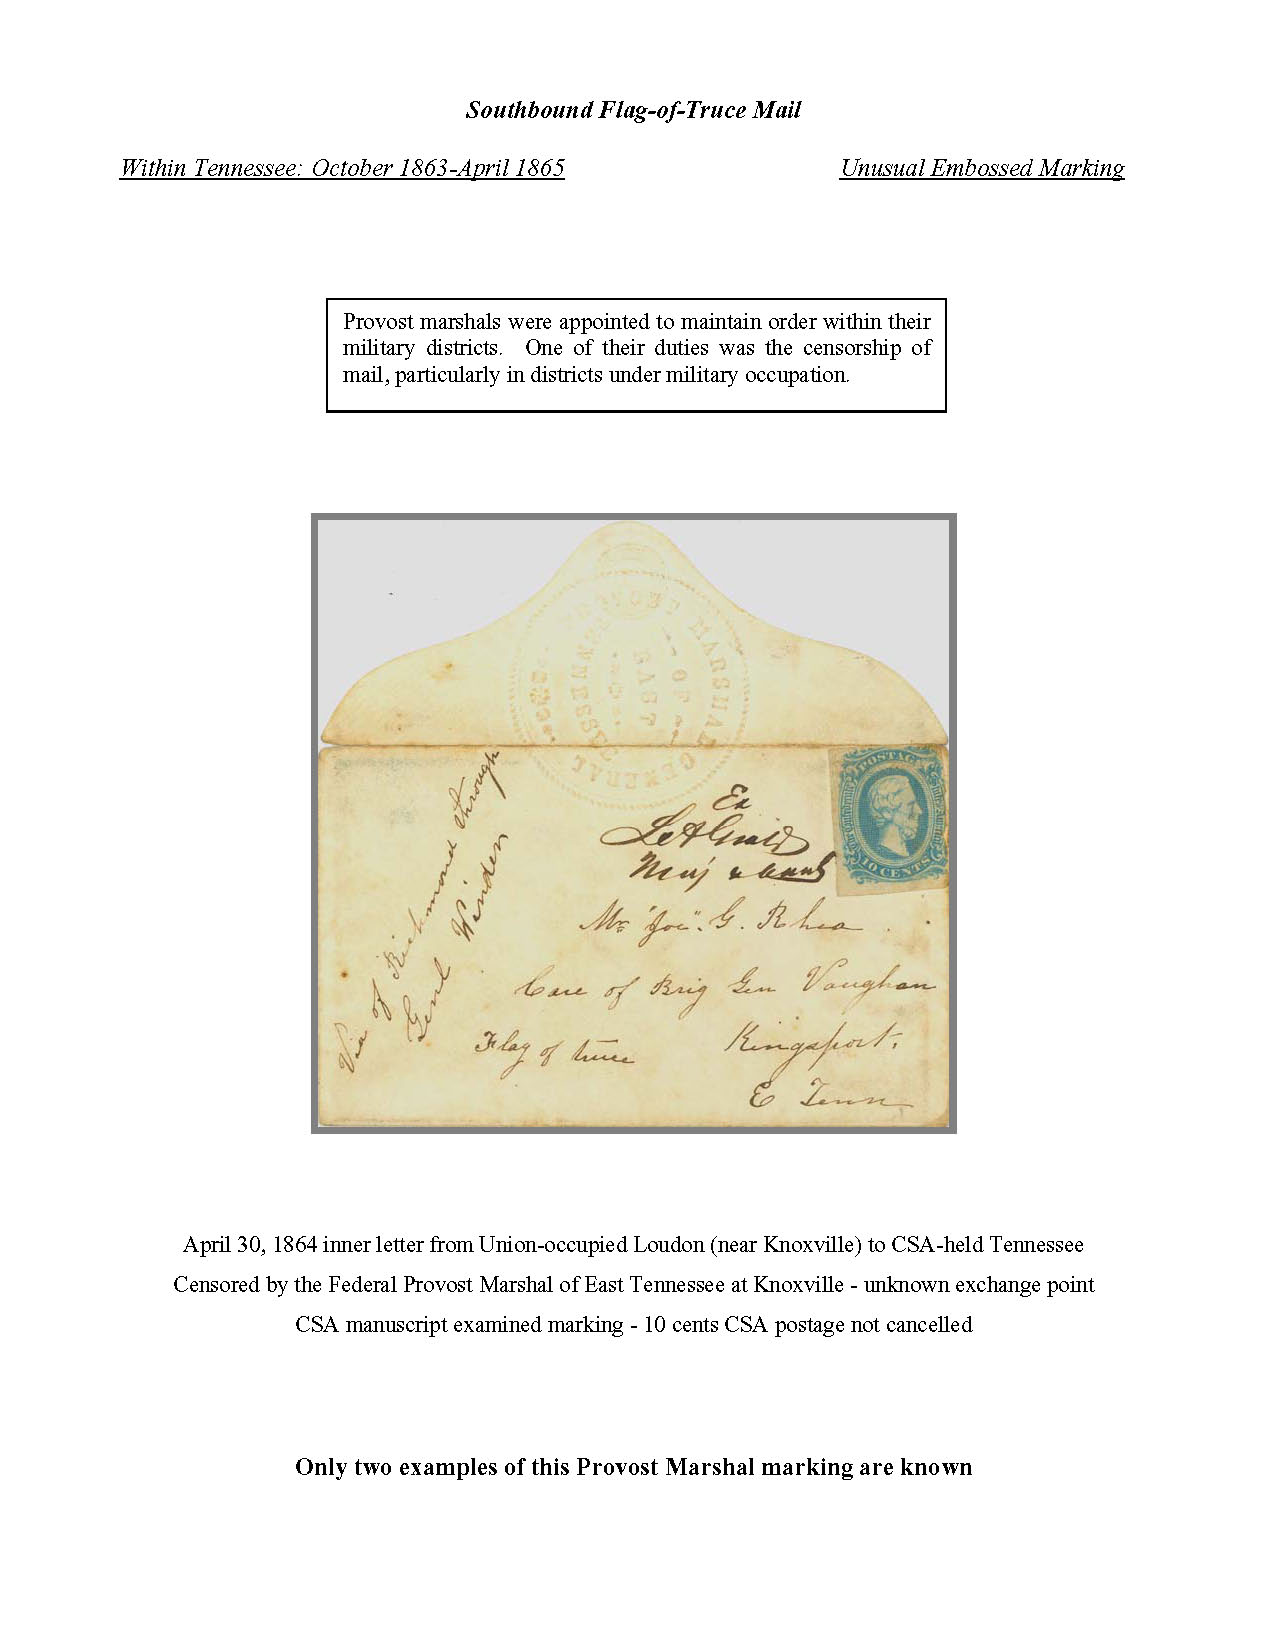 Southbound Flag-of-Truce Mail
Within Tennessee: October 1863-April 1865
Unusual Embossed Marking
Provost marshals were appointed to maintain order within their
military districts. One of their duties was the censorship of
mail, particularly in districts under military occupation.
PROVOST MARSHAL GENERAL
OF
EAST
TENNESSEE
POSTAGE
The Confederate States of America
10 CENTS
Via of Richmond through
Genl Winder
Ex
Maj &
Mr "Joe". G. Rhea
Care of Brig Gen Vaughan
Flag of truce
Kingsport,
E Tenn
April 30, 1864 inner letter from Union-occupied Loudon (near Knoxville) to CSA-held Tennessee
Censored by the Federal Provost Marshal of East Tennessee at Knoxville - unknown exchange point
CSA manuscript examined marking - 10 cents CSA postage not cancelled
Only two examples of this Provost Marshal marking are known